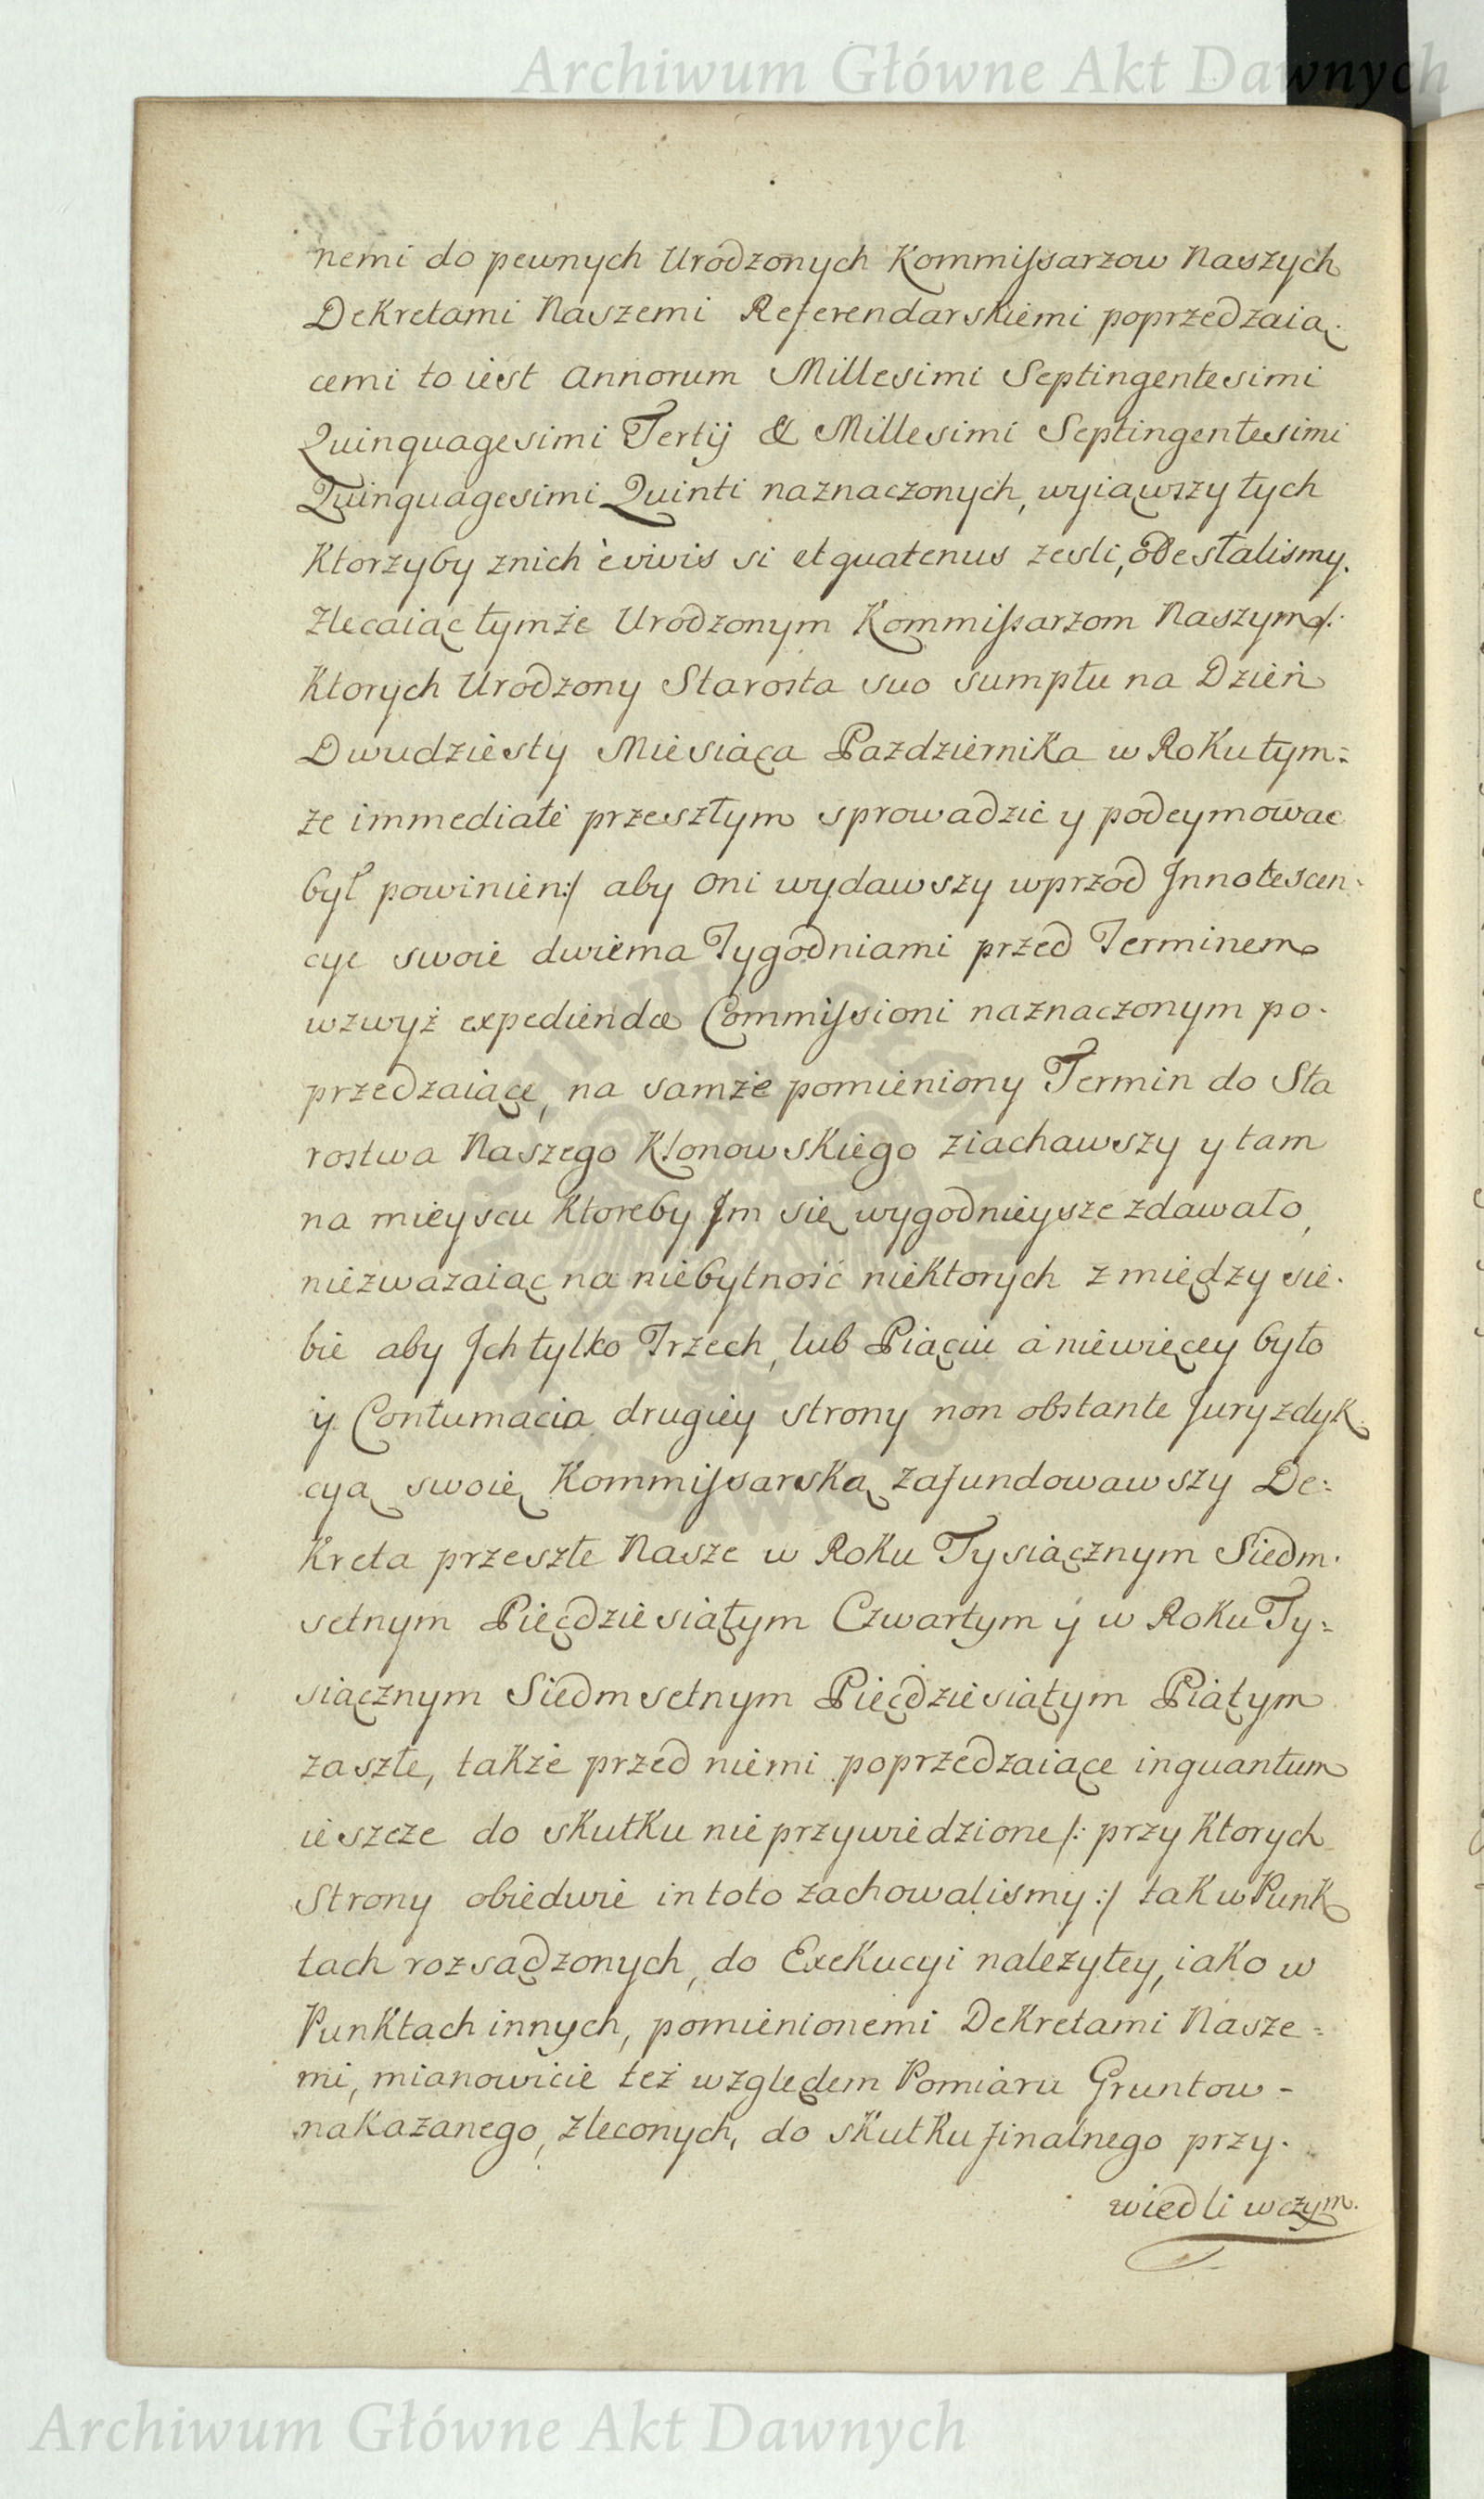 Archiwum Główne Akt Dawnych
nemi do pewnych Urodzonych Kommissarzow Naszych
Dekretami Naszemi Referendarskiemi poprzedzaią.
cemi to iest Annorum Millesimi Septingentesimi
Quinquagesimi Tertij & Millesimi Septingentesimi
Quinquagesimi Quinti naznaczonych, wyiąwszy tych
Ktorzyby znich è vivis si et quatenus zesli, odesłalismy.
Zlecaiąc tymże Urodzonym Kommissarzom Naszym /:
Ktorych Urodzony Starosta suo sumptu na Dzień
Dwudziesty Miesiąca Pazdziernika w Roku tym=
że immediatè przeszłym sprowadzić y podeymować
był powinien :/ aby oni wydawszy wprzod Innotescen=
cye swoie dwiema Tygodniami przed Terminem
wzwyż expediendæ Commissioni naznaczonym po.
przedzaiące, na samże pomieniony Termin do Sta
rostwa Naszego Klonowskiego ziachawszy y tam
na mieyscu ktoreby Im się wygodnieysze zdawało,
niezwazaiąc na niebytność niektorych z między sie.
bie aby Ich tylko Trzech, lub Piąciu á niewięcey było
ÿ Contumacia drugiey strony non obstante Juryzdyk
cyą swoię Kommissarską zafundowawszy De=
kreta przeszłe Nasze w Roku Tysiącznym Siedm.
setnym Pięćdziesiątym Czwartym ÿ w Roku Ty=
siącznym Siedmsetnym Pięćdziesiątym Piątym
zaszłe, także przed niemi poprzedzaiące inquantum
ieszcze do skutku nie przywiedzione /: przy ktorych
Strony obiedwie in toto zachowalismy :/ tak w Punk
tach rozsądzonych, do Exekucyi nalezytey, iako w
Punktach innych, pomienionemi Dekretami Nasze=
mi, mianowicie też względem Pomiaru Gruntow -
nakazanego, zleconych, do skutku finalnego przy.
wiedli wczym.
Archiwum Główne Akt Dawnych